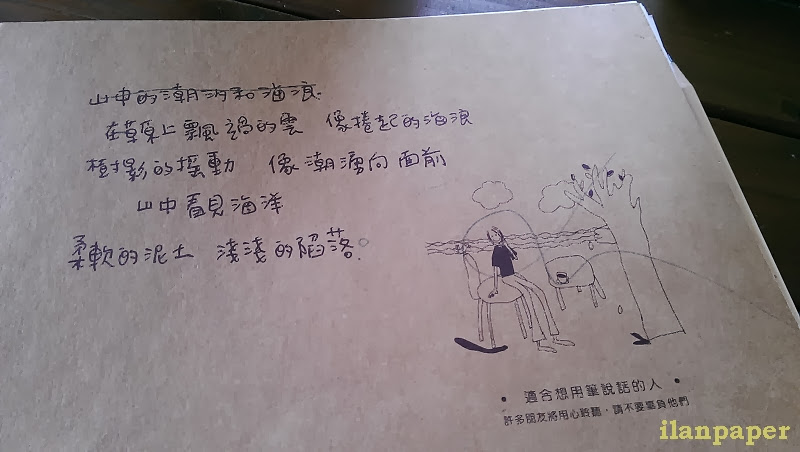 山中的潮汐和海浪
在草原上飄過的雲 像捲起的海浪
樹影的搖動 像潮湧向面前
山中看見海洋
柔軟的泥土 淺淺的陷落。
• 適合想用筆說話的人 •
許多朋友將用心聆聽，請不要辜負他們
ilanpaper